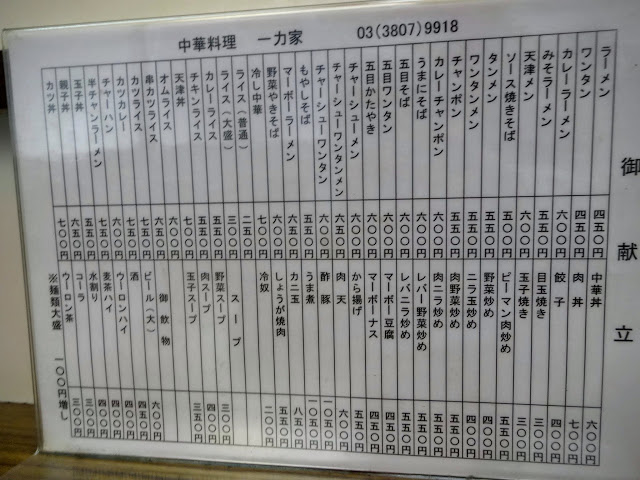 中華料理　一力家　03(3807)9918
御献立
ラーメン 四五〇円
ワンタン 四五〇円
カレーラーメン 六〇〇円
みそラーメン 五五〇円
天津メン 六〇〇円
ソース焼きそば 五〇〇円
タンメン 五五〇円
ワンタンメン 五五〇円
チャンポン 五五〇円
カレーチャンポン 六〇〇円
うまにそば 六〇〇円
五目そば 六〇〇円
五目ワンタン 六〇〇円
五目かたやき 六〇〇円
チャーシューメン 六〇〇円
チャーシューワンタンメン 六五〇円
チャーシューワンタン 六〇〇円
もやしそば 五五〇円
マーボーラーメン 六五〇円
野菜やきそば 六〇〇円
冷し中華 七〇〇円
ライス（普通） 二五〇円
ライス（大盛） 三〇〇円
カレーライス 五五〇円
チキンライス 五五〇円
天津丼 七〇〇円
オムライス 六〇〇円
串カツライス 六五〇円
カツライス 七五〇円
カツカレー 七五〇円
チャーハン 六〇〇円
半チャンラーメン 七五〇円
玉子丼 五五〇円
親子丼 六五〇円
カツ丼 七〇〇円
中華丼 六〇〇円
肉丼 七〇〇円
餃子 四〇〇円
玉子焼き 三〇〇円
目玉焼き 三〇〇円
ピーマン肉炒め 五五〇円
野菜炒め 五〇〇円
ニラ玉炒め 四〇〇円
肉野菜炒め 五五〇円
肉ニラ炒め 五五〇円
レバー野菜炒め 五五〇円
レバニラ炒め 五五〇円
マーボー豆腐 四五〇円
マーボーナス 四五〇円
から揚げ 五五〇円
肉天 六〇〇円
酢豚 一〇五〇円
うま煮 一〇五〇円
カニ玉 八五〇円
しょうが焼肉 五五〇円
冷奴 二〇〇円
スープ
野菜スープ 三〇〇円
肉スープ 四〇〇円
玉子スープ 三五〇円
御飲物
ビール（大） 六〇〇円
酒 四五〇円
ウーロンハイ 四〇〇円
麦茶ハイ 四〇〇円
水割り 四〇〇円
コーラ 三〇〇円
ウーロン茶 三〇〇円
※麺類大盛　一〇〇円増し